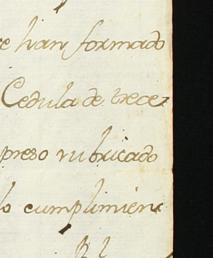 e han formado
Cedula de trece
preso rubricado
lo cumplimien